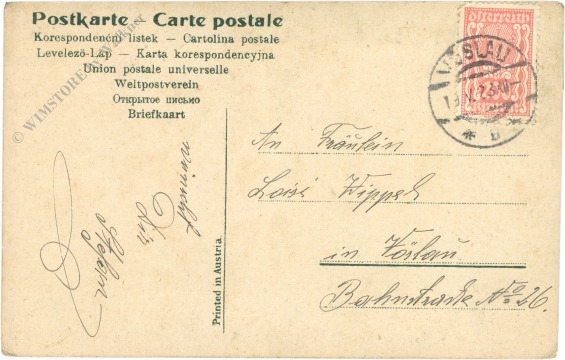 Postkarte — Carte postale
Korespondenční lístek — Cartolina postale
Levelező-Lap — Karta korespondencyjna
Union postale universelle
Weltpostverein
Открытое письмо
Briefkaart
© WIMSTORE
österreich
VÖSLAU
An Fräulein
Loisi Wippel
in Vöslau
Bahnstraße No 26.
wünscht
Dir
Printed in Austria.